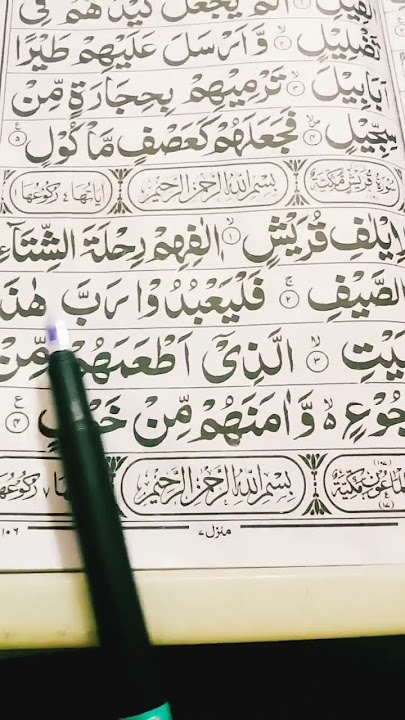 فِيْلِ اَلَمْ يَجْعَلْ كَيْدَهُمْ فِيْ
تَضْلِيْلٍ ۲ وَّاَرْسَلَ عَلَيْهِمْ طَيْرًا
اَبَابِيْلَ ۳ تَرْمِيْهِمْ بِحِجَارَةٍ مِّنْ
سِجِّيْلٍ ۴ فَجَعَلَهُمْ كَعَصْفٍ مَّاْكُوْلٍ ۵
سُوْرَةُ قُرَيْشٍ مَّكِّيَّةٌ بِسْمِ اللهِ الرَّحْمٰنِ الرَّحِيْمِ اٰيَاتُهَا ۴ رُكُوْعُهَا
لِاِيْلٰفِ قُرَيْشٍ ۱ اٖلٰفِهِمْ رِحْلَةَ الشِّتَآءِ
الصَّيْفِ ۲ فَلْيَعْبُدُوْا رَبَّ هٰذَا
بَيْتِ ۳ الَّذِيْٓ اَطْعَمَهُمْ مِّنْ
جُوْعٍ ۙ وَّاٰمَنَهُمْ مِّنْ ۴
الْمَاعُوْنِ مَكِّيَّةٌ (۱۷) بِسْمِ اللهِ الرَّحْمٰنِ الرَّحِيْمِ ۷ رُكُوْعُهَا
منزل ۷ ۱۰۶